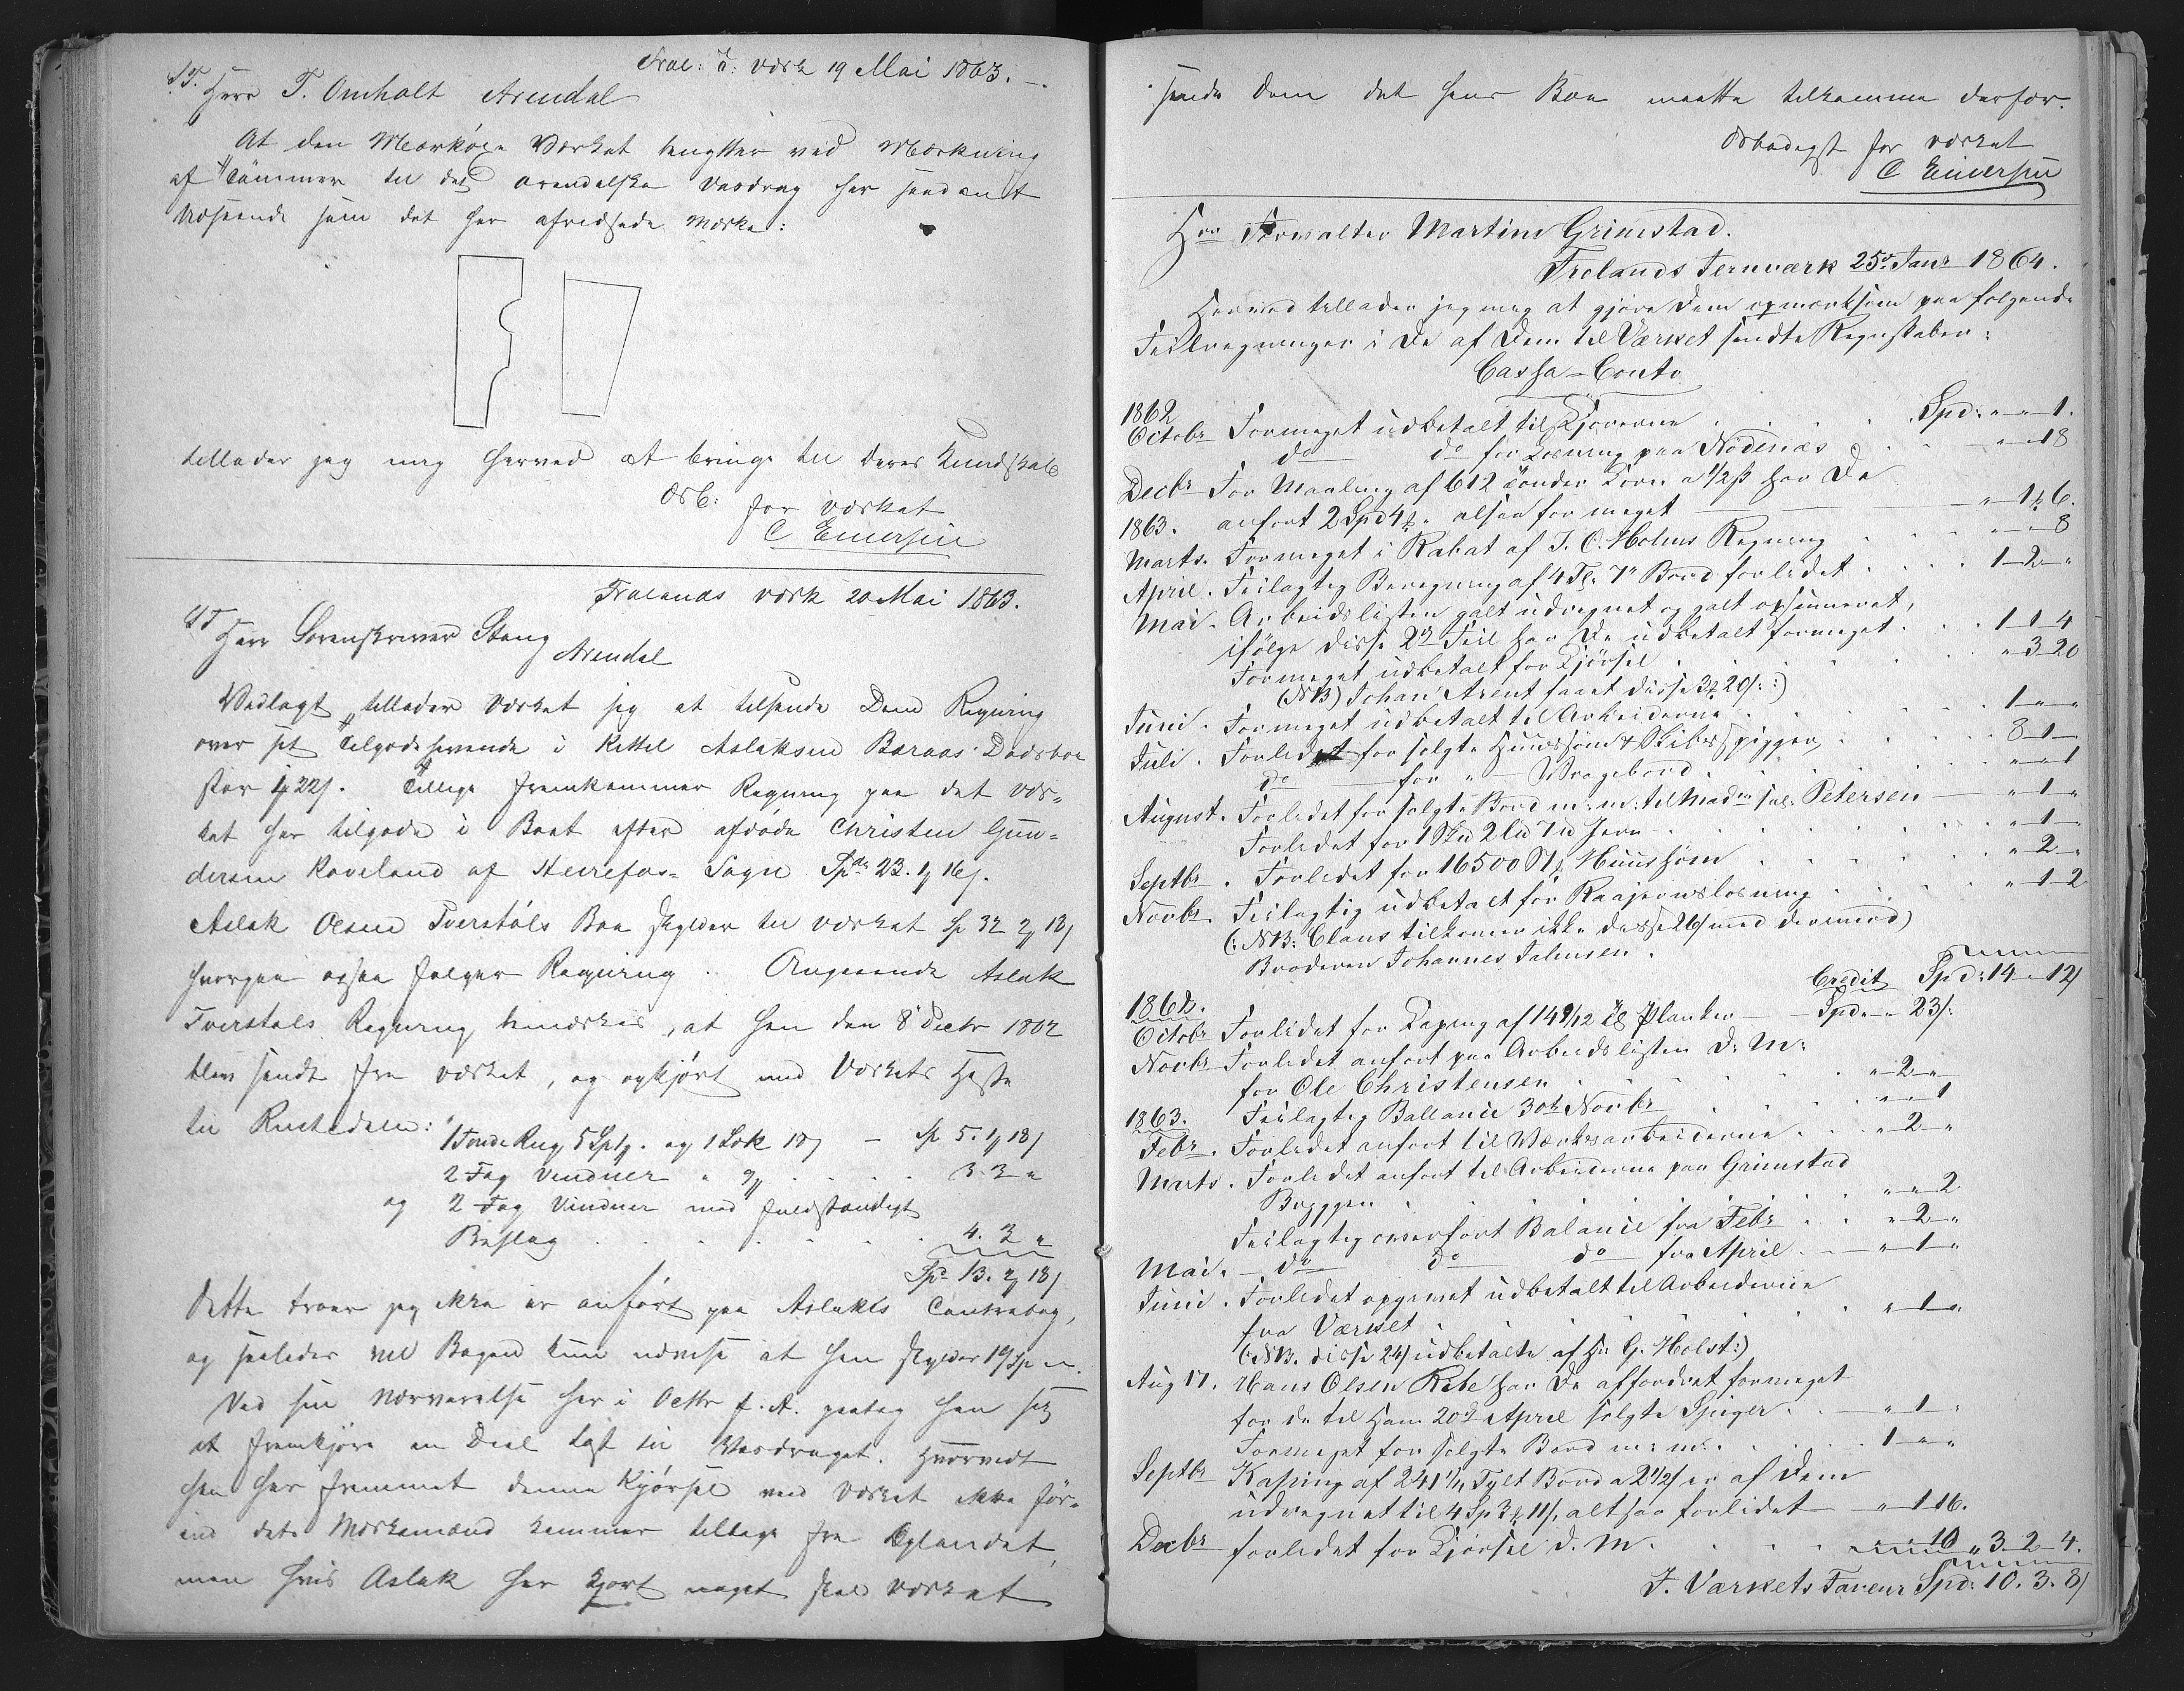 Frol: J: værk 19 Mai 1863. –
S.T. Herr T. Omholt Arendal
At den Mærkøxe Værket benytter ved Mærkning
af Tømmer til det arendalske Vasdrag har saadant
Udseende som det her afridsede Mærke:
tillader jeg mig herved at bringe til Deres Kundskab
Ærb: for værket
C Enersen
Frolands værk 20 Mai 1863.
ST Herr Sorenskriver Stang
Arendal
Vedlagt tillader Værket sig at tilsende Dem Regning
over sit Tilgodehavende i Kittel Aslaksen Baraas Dødsboe
stor 22/. Tillige fremkommer Regning paa det vær-
ket har tilgode i Boet efter afdøde Christen Gun-
dersen Raveland af Herrefos- Sogn Spdr 23. 1 16/.
Aslak Olsen Tverstøls Boe skylder til værket Sp 32 2 18/
hvorpaa ogsaa følger Regning. Angaaende Aslak
Tverstøls Regning bemærkes, at han den 8 Decbr 1862
blev sendt fra værket, og opkjørt med Værkets Heste
til Rustedalen:
1 Tønde Rug 5 Sp og 1 Sæk 18/ – Sp 5. 1 18/
2 Fag Vinduer . . . . 3. 3 "
og 2 Fag Vinduer med fuldstændigt
Beslag . . . . . . 4. 2 "
Spd 13. 2 18/
Dette troer jeg ikke er anført paa Aslaks Contrabog,
og saaledes vil Bogen kun udvise at han skylder 19 Sp
Ved sin Nærværelse her i Octbr f. A. paatog han sig
at fremkjøre en Deel Last til Vasdraget. Hvorvidt
han har fremmet denne Kjørsel ved Værket ikke før-
end dets Mærkemænd kommer tilbage fra Oplandet,
men hvis Aslak har kjørt noget skal værket
sende Dem det hans Boe maatte tilkomme derfor.
Ærbødigst for værket
C Enersen
Hrr Forvalter Martini Grimstad.
Frolands Jernværk 25de Janr 1864.
Herved tillader jeg mig at gjøre Dem opmærksom paa følgende
Feilregninger i De af Dem til Værket sendte Regnskaber:
Cassa-Conto
1862
Octobr Formeget udbetalt til Kjørerne . . . . Spd: " – " – 1.
do do for Losning paa Nødenæs . . . " – 18
Decbr For Maaling af 612 Tønder Korn a 1/2 ß har De
1863. anført 2 Spd 4 " altsaa for meget " 1 6.
Marts. Formeget i Rabat af J. C. Holms Regning . . . " – " – 8
April. Feilagtig Beregning af 4 Tl. 7" Bord forlidet . . . . 1 – 2 – "
Mai. Arbeidslisten galt udregnet og galt opsummeret,
ifølge disse 2de Feil har De udbetalt formeget . . . 1 – 1 – 4
Formeget udbetalt for Kjørsel . . . . . . " – 3 – 20
(NB) Johan Arent faaet disse 3 20/:)
Juni. Formeget udbetalt til Arbeiderne . . . . . . 1 – " – "
Juli. Forlidet for solgte Huussøm & Skibsspigger, . . . . . 8 – 1 –
do – for " – Vragebord . . . . . . . " – " – 1
August. Forlidet for solgte Bord m: m: til Madm sal: Petersen – " – 1 – "
Forlidet for 1 Sku 2 Lu 7 u Jern . . . . . . . " – 1 – "
Septbr. Forlidet for 16500 Stk Huussøm . . . . . . " – 2 – "
Novbr. Feilagtig udbetalt for Raajernslosning . . . . . " – 1 – 2
(: NB: Claus tilkommer ikke disse 26/ med dermed)
Broderen Johannes Salmsen.
Spd: 14 – " – 12/
1862. Credit
Octobr Forlidet for Kaping af 149/12 Tl Planker – Spd " – " 23/:
Novbr Forlidet anført paa Arbeidslisten D: M:
for Ole Christensen . . . . . . . " – 2 – "
1863. Feilagtig Ballance 30te Novbr . . . . " – " – 1
Febr. Forlidet anført til Værksarbeiderne . . . " – 2 – "
Marts. Forlidet anført til Arbeiderne paa Grimstad
Bryggen . . . . . . . . . " – " – 2
Feilagtig overført Balance fra Febr . . . " – 2 – "
Mai. – do do do fra April . . – " – 1 – "
Juni. Forlidet opgivet udbetalt til Arbeiderne
fra Værket . . . . . . . . " – 1 – "
(: NB. disse 24/ udbetalte af Hr G. Holst:)
Aug 17. Hans Olsen Rebe har De affordret formeget
for de til Ham 20de April solgte Spiger . . – " – 1 –
Formeget for solgte Bord m: m: . . . . . 1 – " – "
Septbr Kaping af 241 Tylt Bord a 2 1/2/ er af Dem
udregnet til 4 Sp 3 11/, altsaa forlidet – " – 1 16.
Decbr forlidet for Kjørsel D. M. . . . . 10 " 3 – 2 – 4.
I Værkets Faveur Spd: 10. 3. 8/